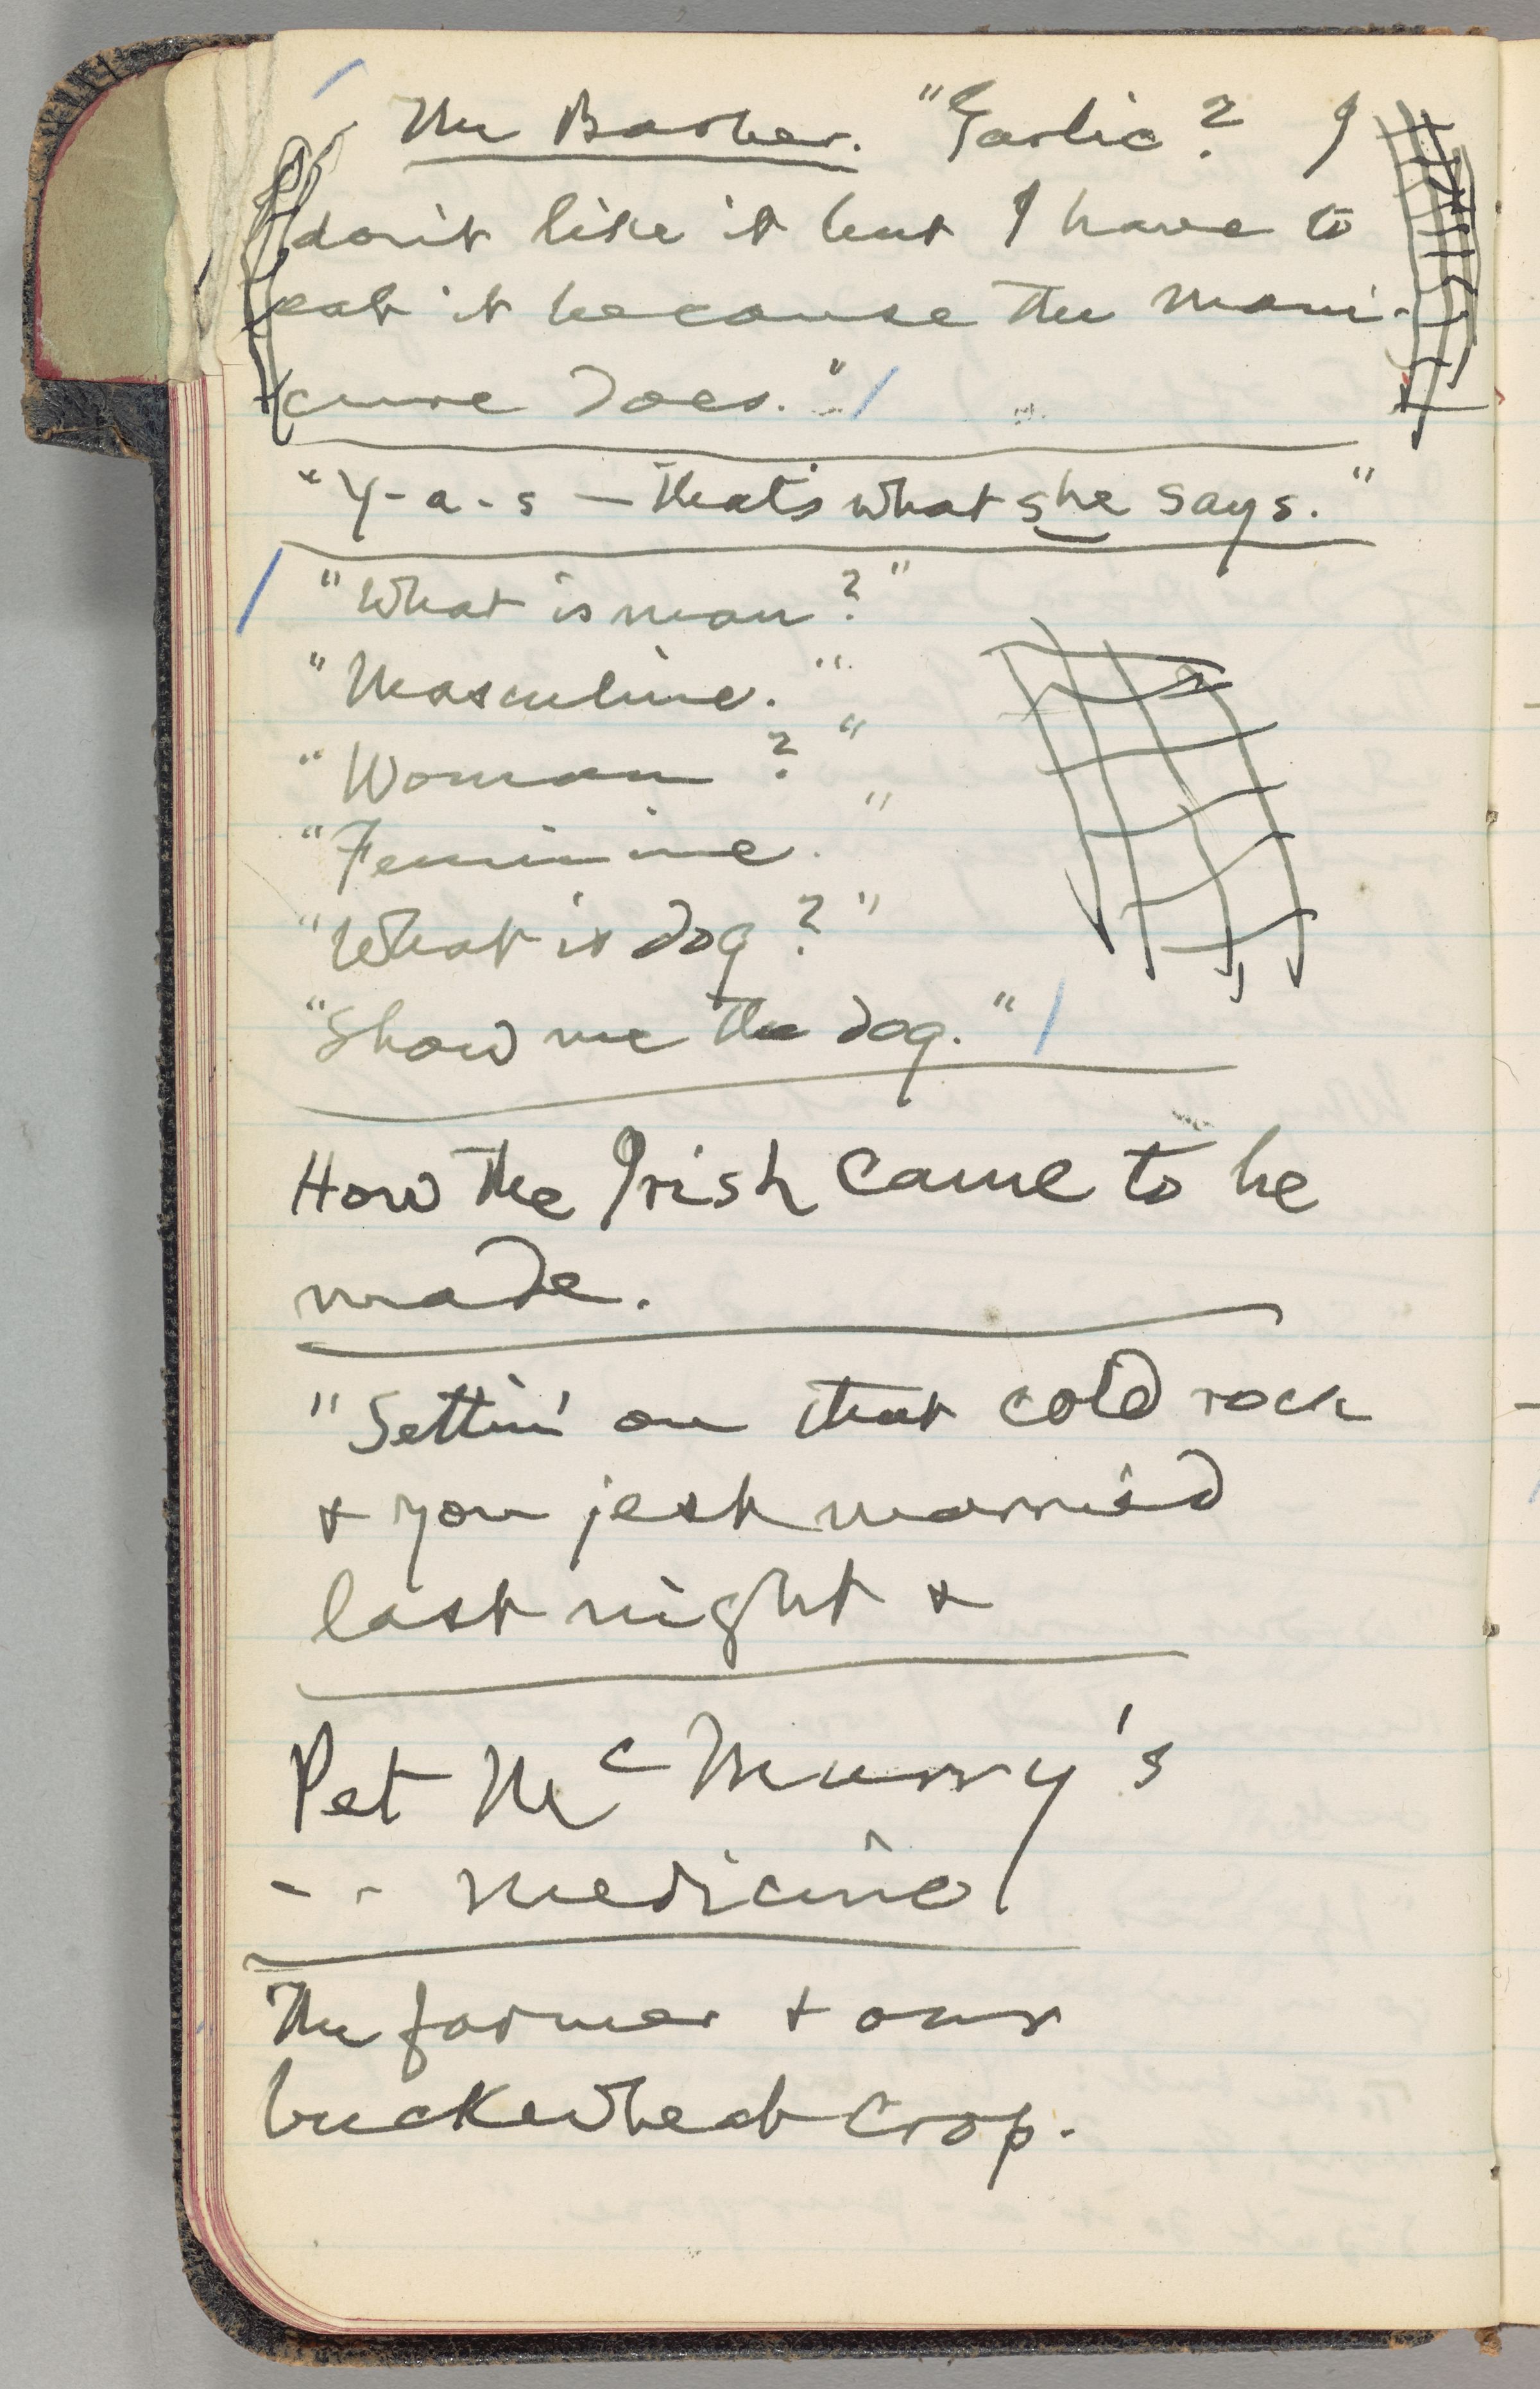 The Barber. "Garlic? I
don't like it but I have to
eat it because the mani-
cure does."
"Y-a-s — that's what she says."
"What is man?"
"Masculine."
"Woman?"
"Feminine."
"What is dog?"
"Show me the dog."
How the Irish came to be
made.
"Settin' on that cold rock
& you jest married
last night &
Pet McMurry's
- - medicine
The farmer & our
buckwheat crop.